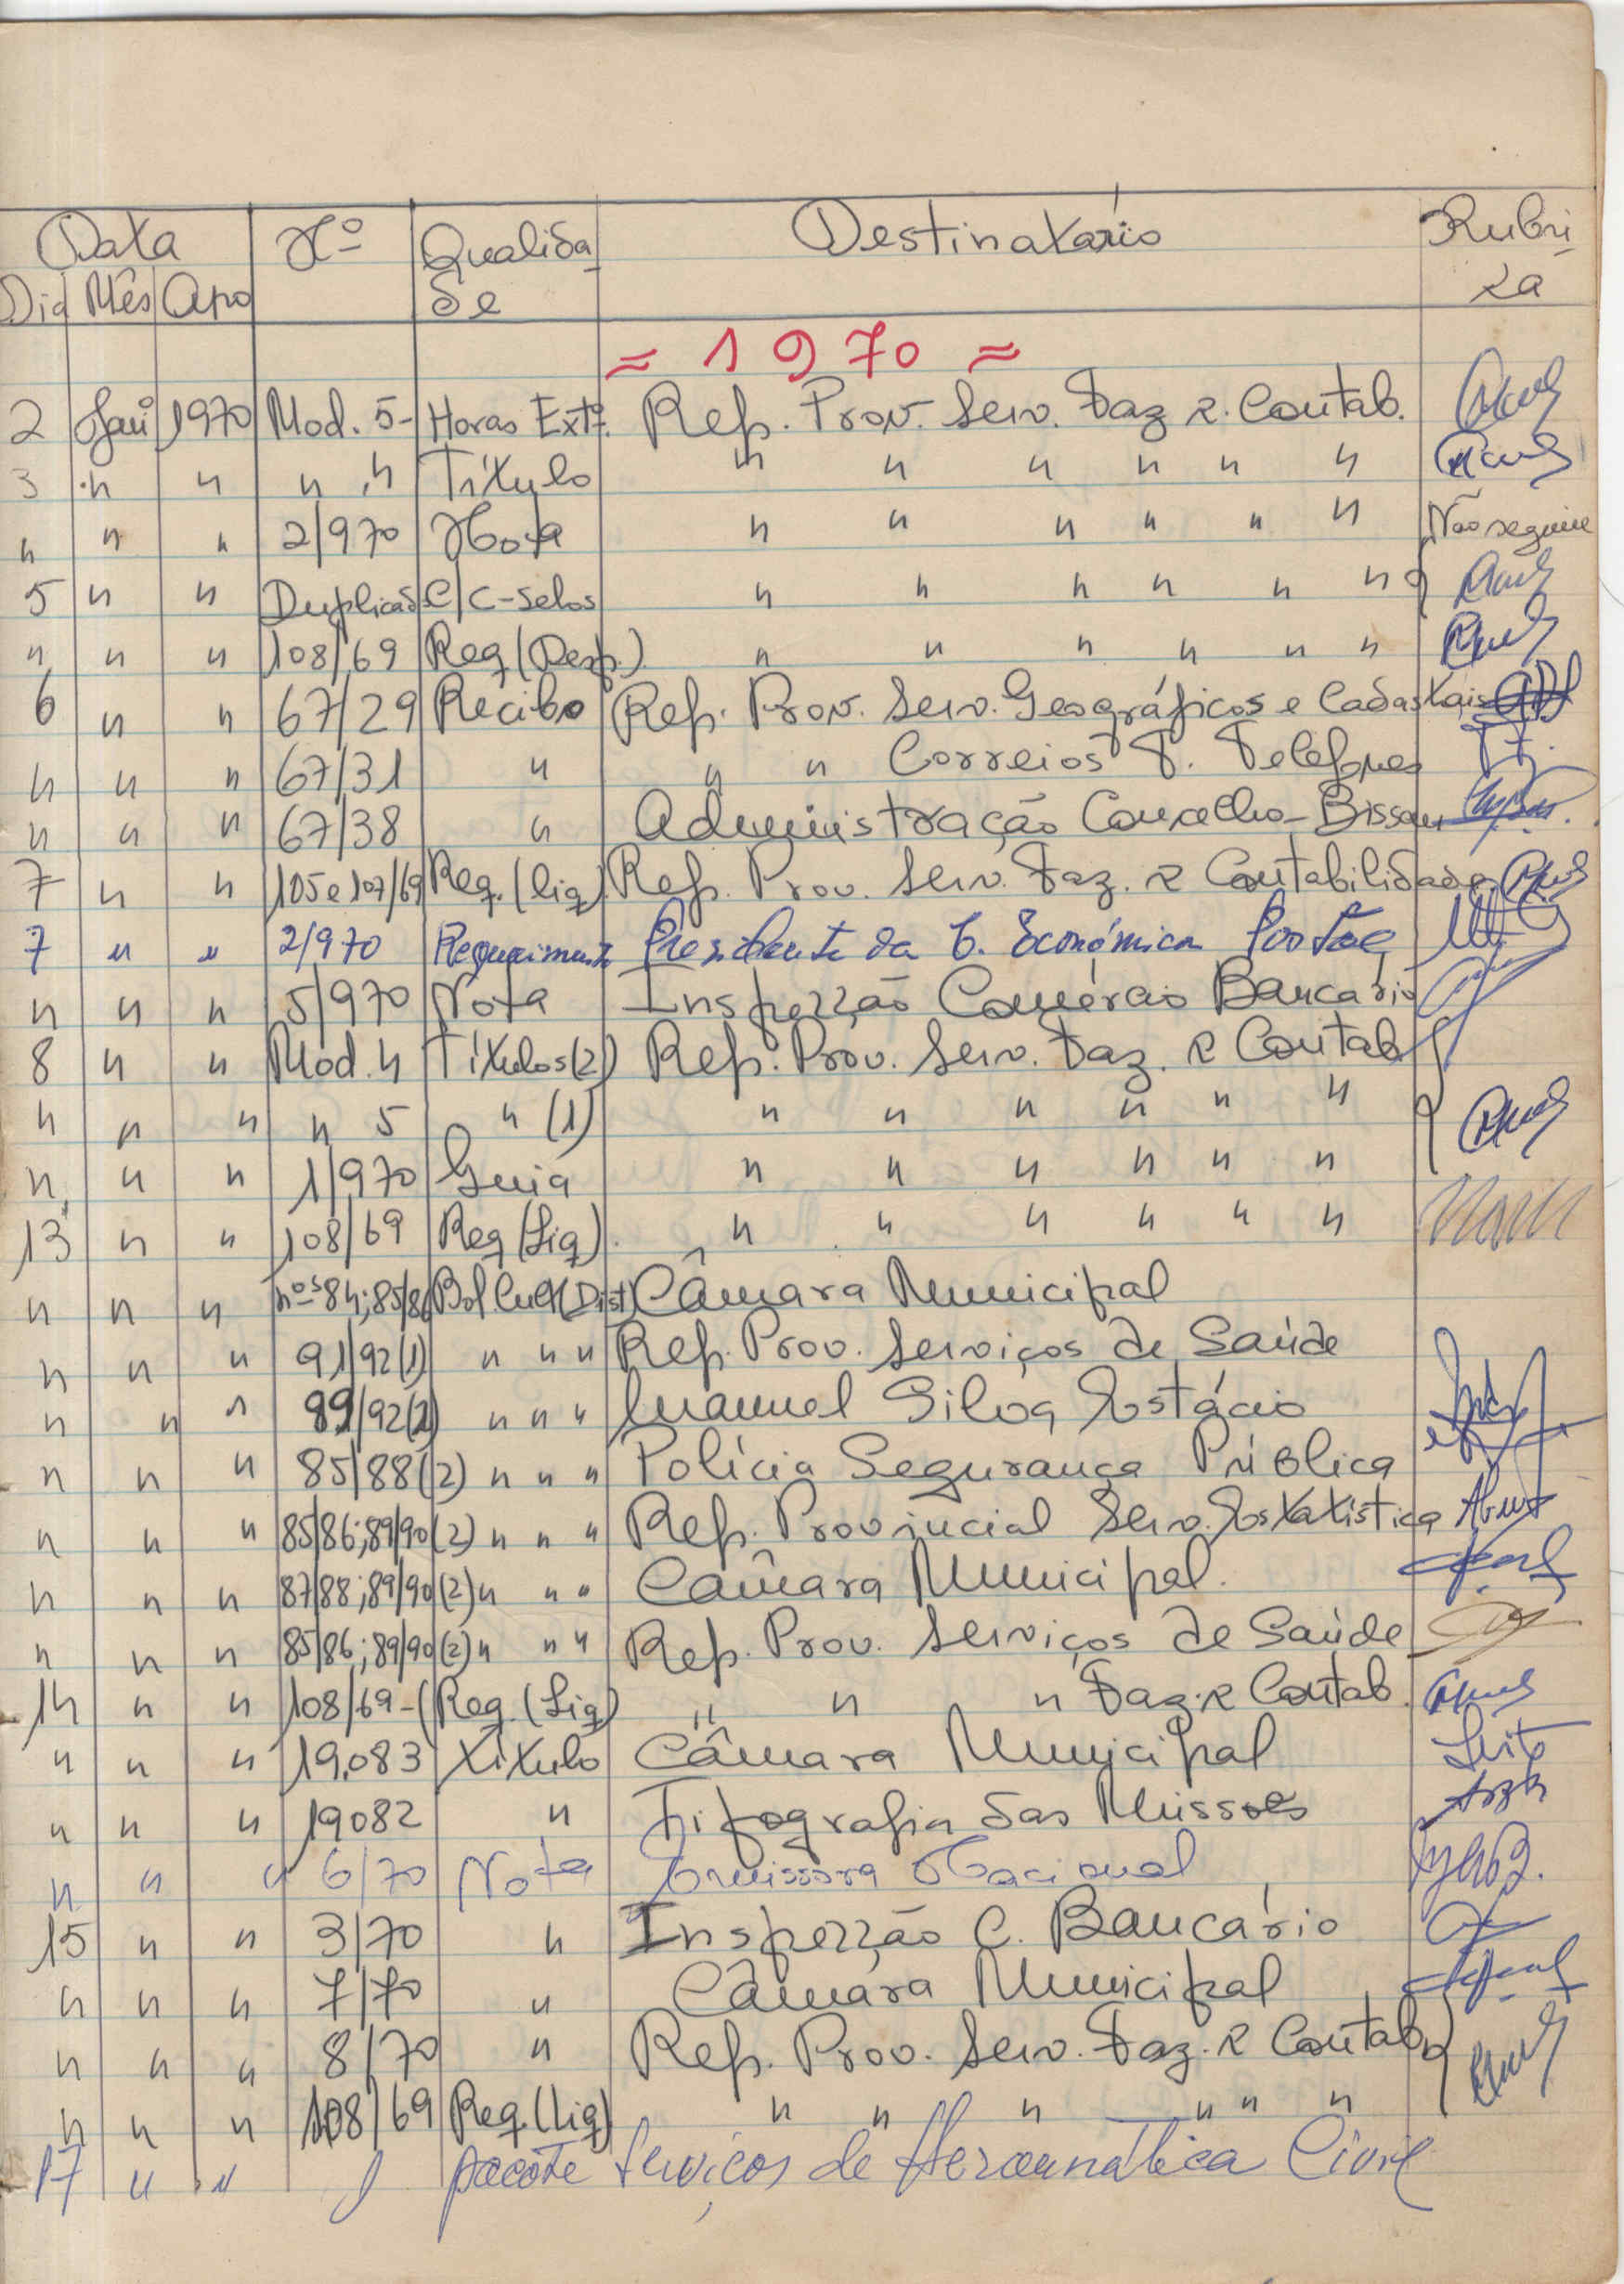 Data Nº Qualida- Destinatário Rubri-
Dia Mês Ano de ca
= 1970 =
2 Janº 1970 Mod. 5- Horas Extª. Rep. Prov. Serv. Faz e. Contab.
3 " " " " Título " " " " " "
" " " 2/970 Nota " " " " " " Não seguiu
5 " " Duplicado C/C-selos " " " " " "
" " " 108/69 Req (Desp.) " " " " " "
6 " " 67/29 Recibo Rep. Prov. Serv. Geográficos e Cadastrais
" " " 67/31 " " " Correios T. Telefones
" " " 67/38 " Administração Concelho-Bissau
7 " " 105 e 107/69 Req. (liq) Rep. Prov. Serv. Faz. e Contabilidade
7 " " 2/970 Requerimento Presidente da C. Económica Postal
" " " 5/970 Nota Inspecção Comércio Bancário
8 " " Mod. 4 Títulos (2) Rep. Prov. Serv. Faz. e Contab
" " " " 5 " (1) " " " " " "
" " " 1/970 Guia " " " " " "
13 " " 108/69 Req (Liq) " " " " " "
" " " nºs 84;85/86 Bol Cult (Dist) Câmara Municipal
" " " 91/92 (1) " " " Rep. Prov. Serviços de Saúde
" " " /92 " " " Manuel Silva Estácio
" " " 85/88 (2) " " " Polícia Segurança Pública
" " " 85/86;89/90 (2) " " " Rep. Provincial Serv. Estatística
" " " 87/88;89/90 (2) " " " Câmara Municipal.
" " " 85/86;89/90 (2) " " " Rep. Prov. Serviços de Saúde
14 " " 108/69-( Req. (Liq) " " " Faz. e Contab.
" " " 19.083 Título Câmara Municipal
" " " 19082 " Tipografia das Missões
" " " 6/70 Nota Emissora Nacional
15 " " 3/70 " Inspecção C. Bancário
" " " 7/70 " Câmara Municipal
" " " 8/70 " Rep. Prov. Serv. Faz. e Contab
" " " 108/69 Req. (Liq) " " " " " "
17 " " 1 pacote Serviços de Aeronáutica Civil